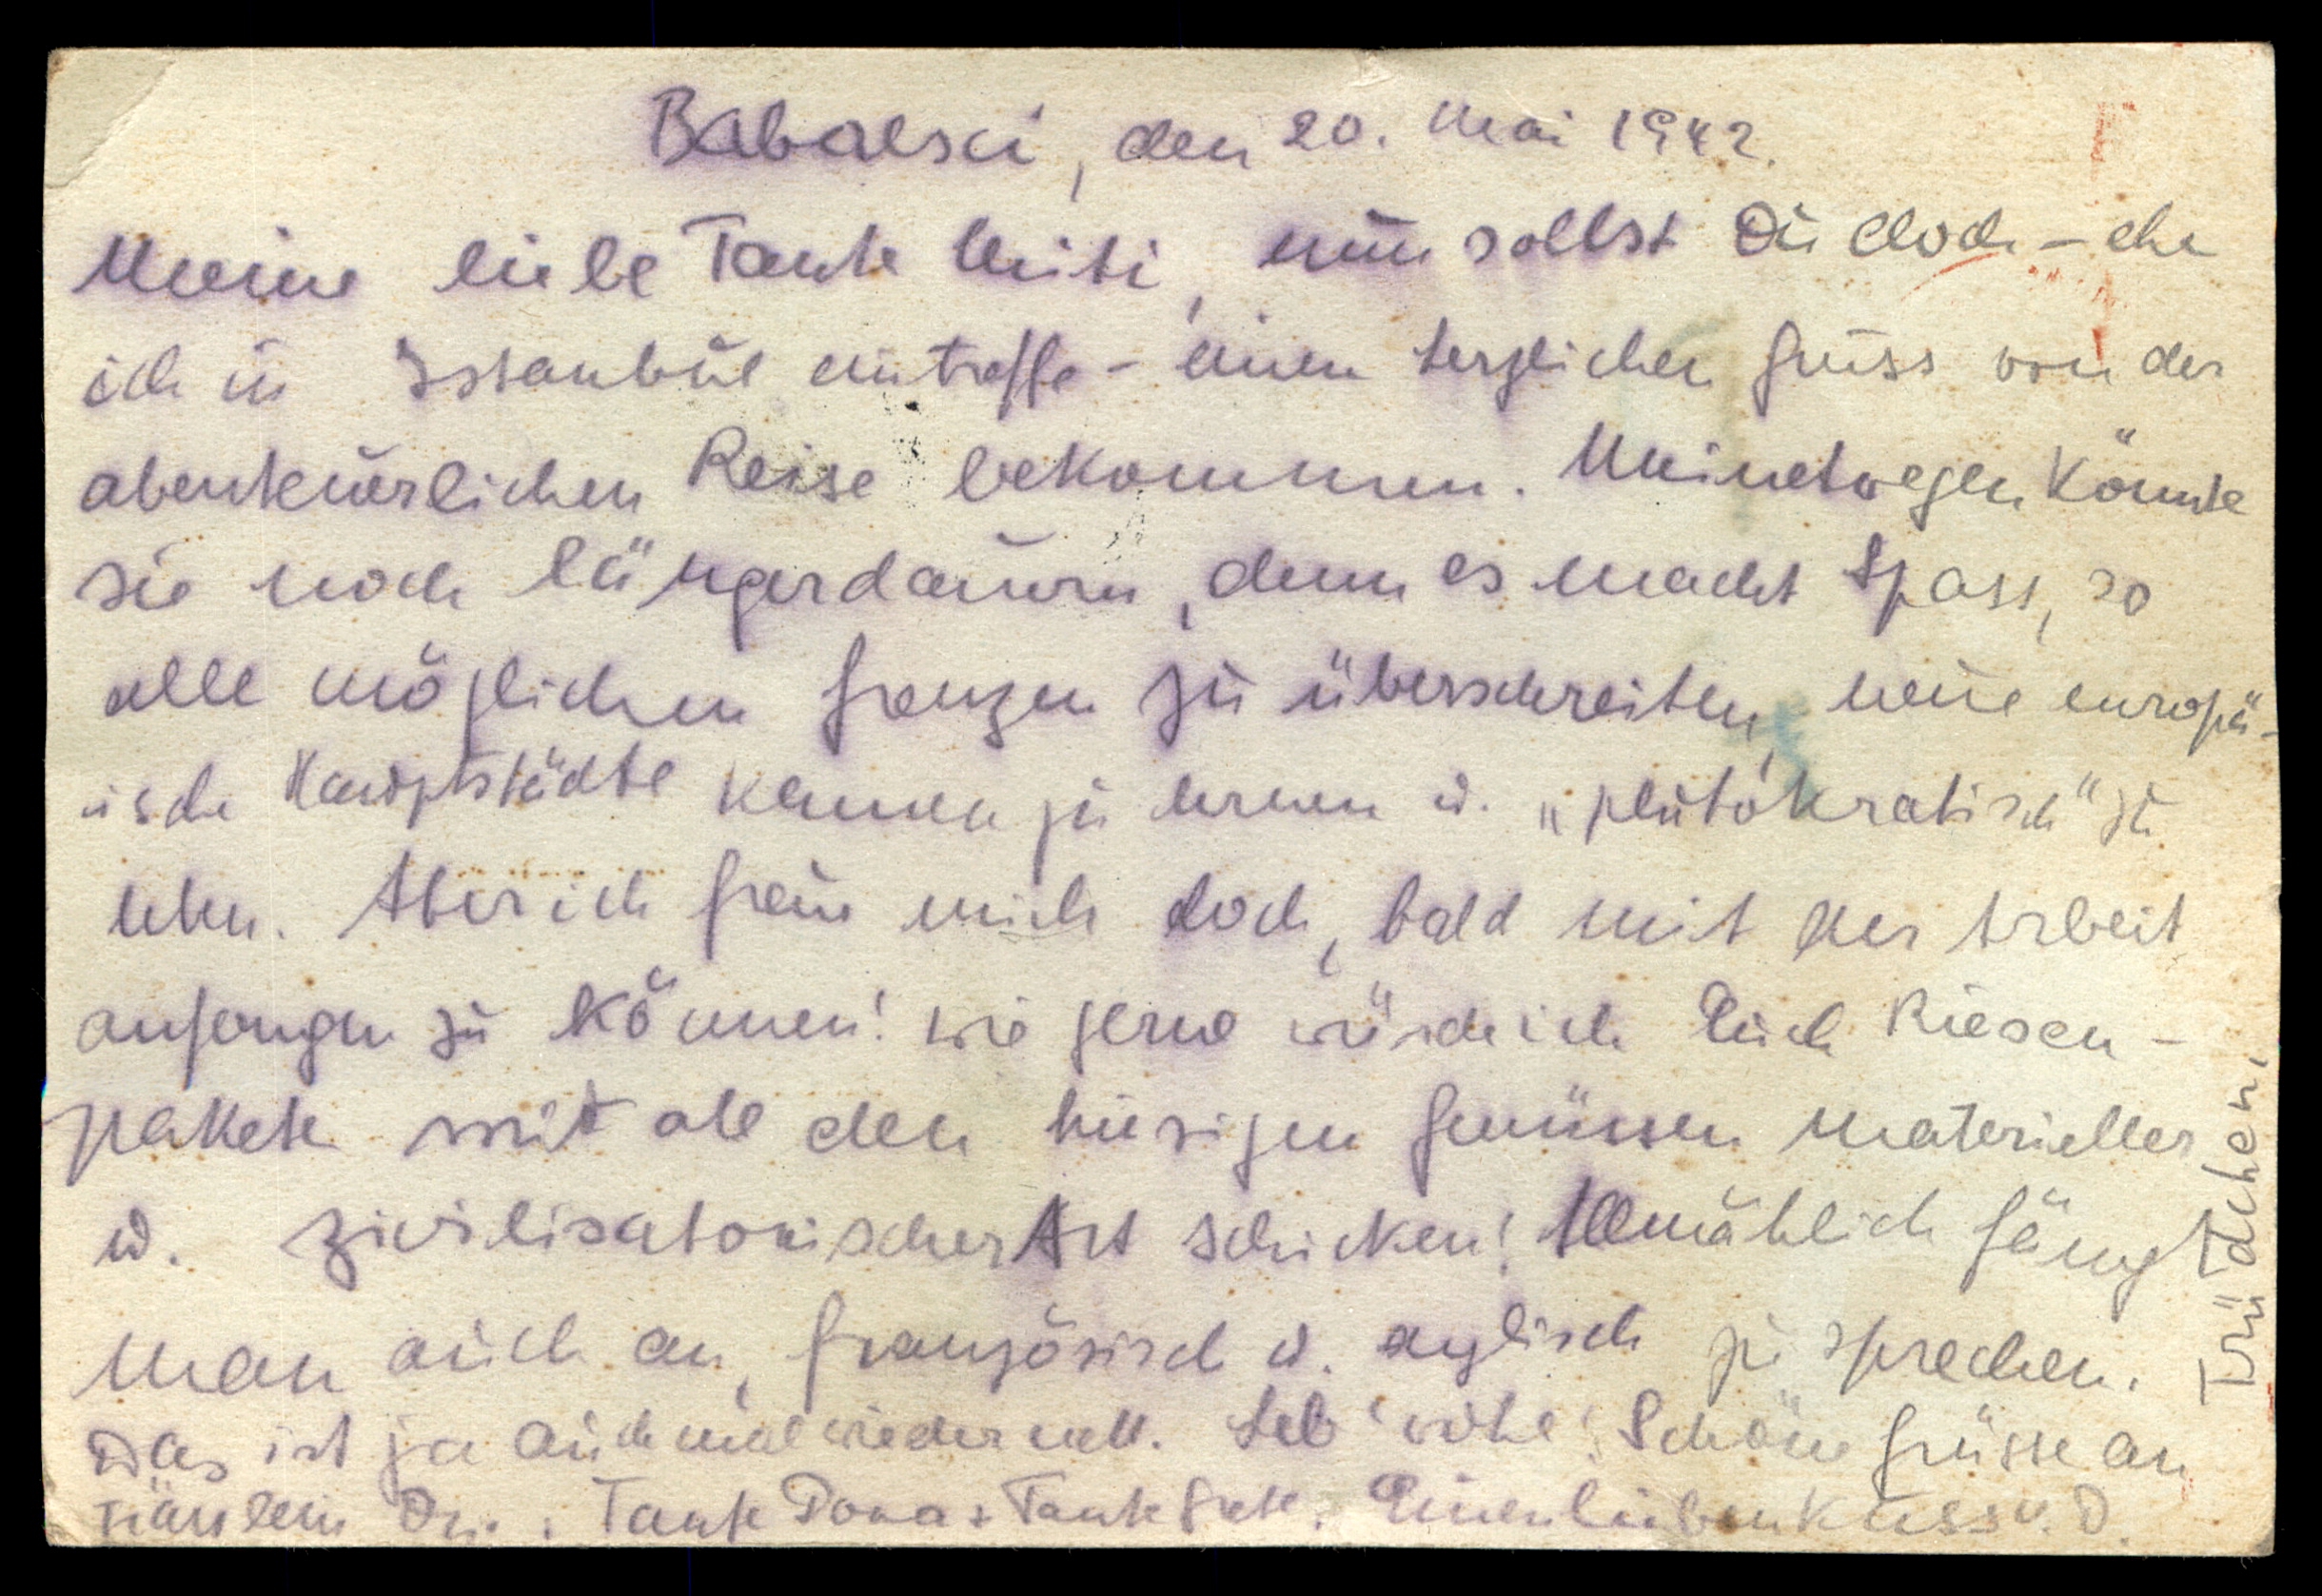 Babaesci, den 20. Mai 1942.
Meine liebe Tante Miti, nun sollst Du doch – ehe
ich in Istanbul eintreffe – einen herzlichen Gruss von der
abenteuerlichen Reise bekommen. Meinetwegen könnte
sie noch länger dauern, denn es macht Spass, so
alle möglichen Grenzen zu überschreiten, neue europä-
ische Hauptstädte kennen zu lernen u. „plutokratisch" zu
leben. Aber ich freue mich doch, bald mit der Arbeit
anfangen zu können! Wie gerne würde ich Euch Riesen-
pakete mit all den hiesigen Genüssen materieller
u. zivilisatorischer Art schicken! Allmählich fängt
man auch an, französisch u. englisch zu sprechen.
Das ist ja auch mal wieder nett. Leb' wohl! Schöne Grüsse an
Fräulein Dr., Tante Dora + Tante Grete. Einen lieben Kuss v. D.
Trüdchen.